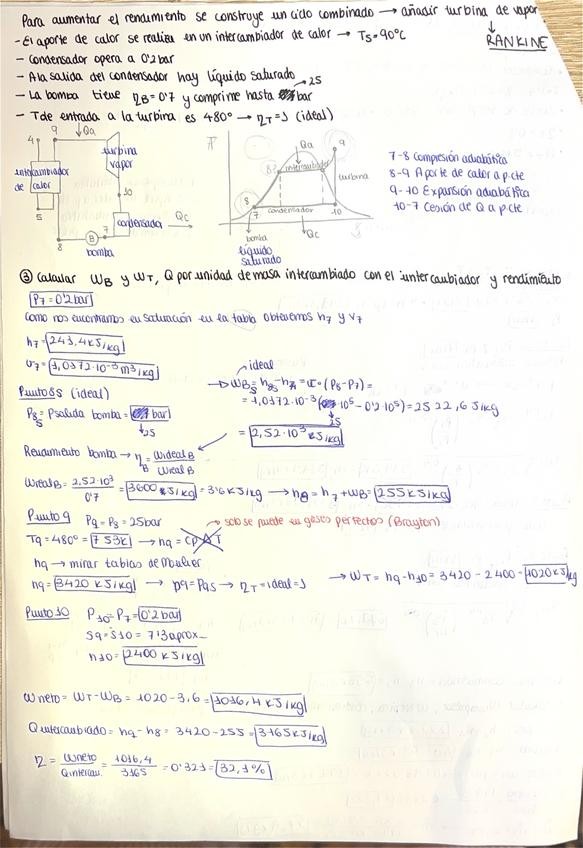 Para aumentar el rendimiento se construye un ciclo combinado → añadir turbina de vapor
↓
RANKINE
- El aporte de calor se realiza en un intercambiador de calor → Ts=90ºC
- Condensador opera a 0'2 bar
- A la salida del condensador hay líquido saturado
- La bomba tiene ηB=0'7 y comprime hasta 25 bar
- T de entrada a la turbina es 480º → ηT=1 (ideal)
4 9 Qa
turbina vapor
intercambiador de calor
5
10
condensador
Qc
8 B 7
bomba
T
Qa
9
8
intercambiador
turbina
8
7
condensador
10
bomba
Qc
líquido saturado
7-8 Compresión adiabática
8-9 Aporte de calor a p cte
9-10 Expansión adiabática
10-7 Cesión de Q a p cte
③ Calcular WB y WT, Q por unidad de masa intercambiado con el intercambiador y rendimiento
P7=0'2 bar
Como nos encontramos en saturación en la tabla obtenemos h7 y v7
h7= 251,4 kJ/kg
v7= 1,0172·10⁻³ m³/kg
Punto 8s (ideal)
P8s = Psalida bomba = 25 bar
ideal
→ WBs = h8s-h7 = v·(P8-P7) =
= 1,0172·10⁻³ (25·10⁵ - 0'2·10⁵) = 2522,6 J/kg
= 2,52·10³ J/kg
Rendimiento bomba → ηB = Wideal B / Wreal B
Wreal B = 2,52·10³ / 0'7 = 3600 J/kg = 3'6 kJ/kg → h8 = h7 + WB = 255 kJ/kg
Punto 9 P9 = P8 = 25 bar
T9 = 480º = 753K → h9 = cp ΔT
→ solo se puede en gases perfectos (Brayton)
h9 → mirar tablas de Moulier
h9 = 3420 kJ/kg → p9 = p9s → ηT = ideal = 1 → WT = h9-h10 = 3420 - 2400 = 1020 kJ/kg
Punto 10 P10 = P7 = 0'2 bar
s9 = s10 = 7'3 aprox
h10 = 2400 kJ/kg
Wneto = WT-WB = 1020 - 3,6 = 1016,4 kJ/kg
Q intercambiado = h9-h8 = 3420-255 = 3165 kJ/kg
η = Wneto / Qintercau. = 1016,4 / 3165 = 0'321 = 32,1%